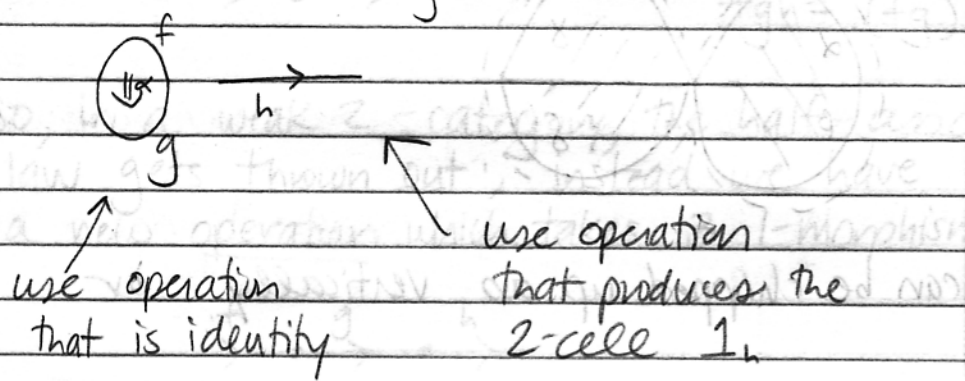 f
⇓α
h
g
use operation
that is identity
use operation
that produces the
2-cell 1ₕ